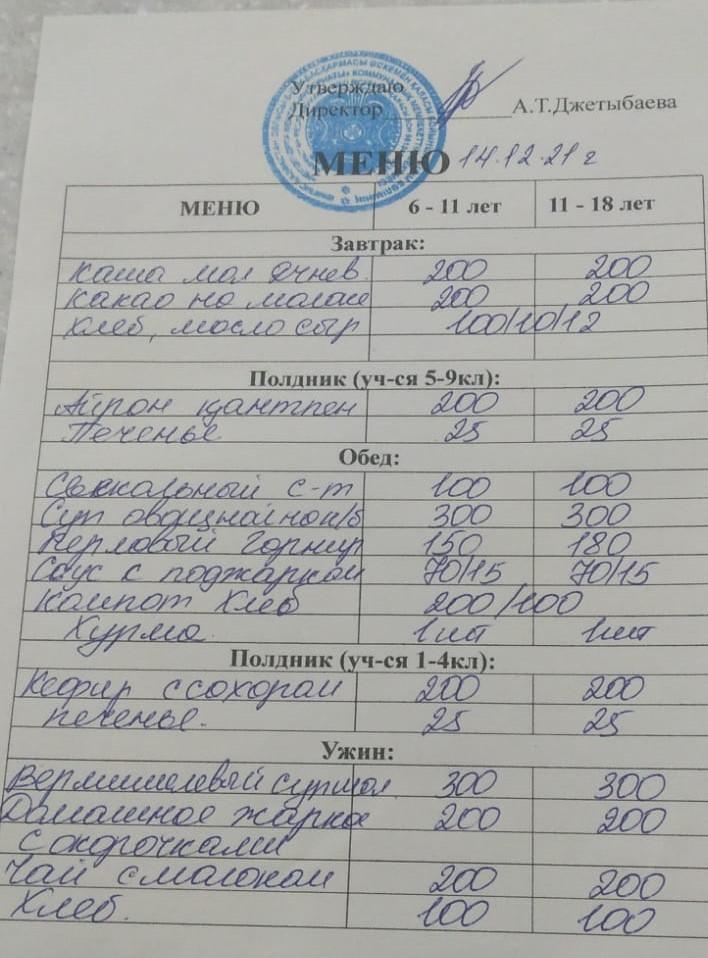 Утверждаю
Директор А.Т.Джетыбаева
МЕНЮ 14.12.21 г
МЕНЮ 6 - 11 лет 11 - 18 лет
Завтрак:
Каша мол ячнев. 200 200
Какао на молоке 200 200
Хлеб, масло сыр 100/10/12
Полдник (уч-ся 5-9кл):
Айран қантпен 200 200
Печенье 25 25
Обед:
Свекольный с-т 100 100
Суп овощной на к/б 300 300
Перловый гарнир 150 180
Соус с поджаркой 70/15 70/15
Компот Хлеб 200/100
Хурма 1шт 1шт
Полдник (уч-ся 1-4кл):
Кефир с сахаром 200 200
печенье. 25 25
Ужин:
Вермишелевый суп мол. 300 300
Домашнее жаркое 200 200
с окорочками
Чай с молоком 200 200
Хлеб. 100 100